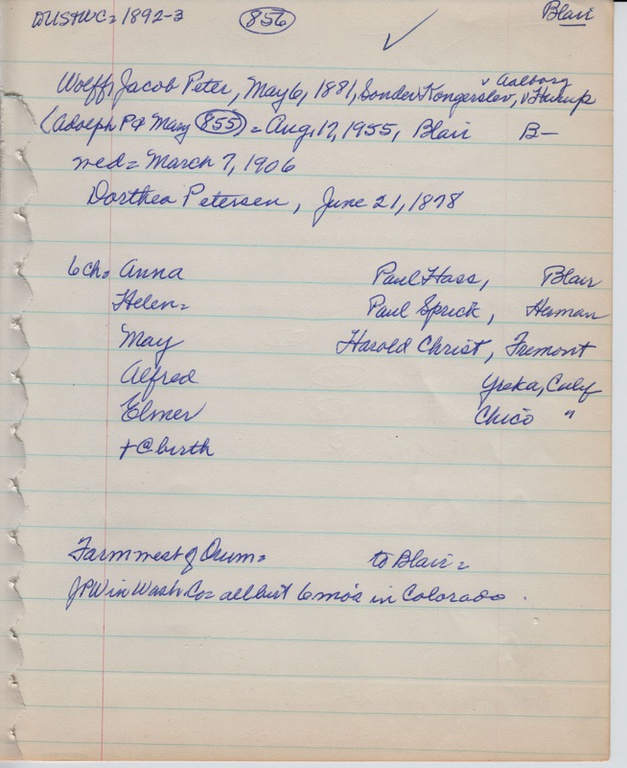 DUS+WC= 1892-3 856 Blair
v Aalborg
Wolff, Jacob Peter, May 6, 1881, Sonder Kongerslev, v Hurup
(Adolph P & Mary 855) = Aug. 17, 1955, Blair B-
med= March 7, 1906
Dorthea Petersen, June 21, 1878
6 ch= Anna Paul Hass, Blair
Helen= Paul Sprick, Herman
May Harold Christ, Fremont
Alfred Yreka, Calif
Elmer Chico "
+ @ birth
Farm west of Orum= to Blair=
JPW in Wash Co= all but 6 mo's in Colorado.